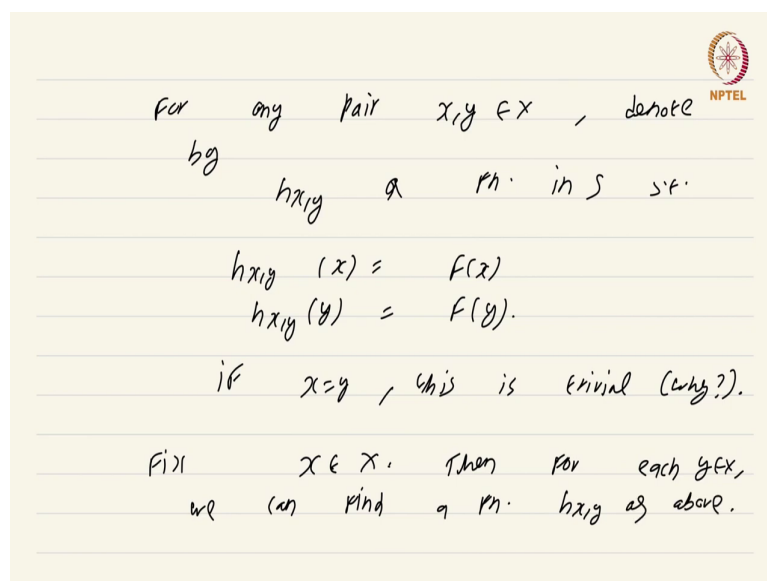 NPTEL
For any pair x,y ∈ X, denote
by
h_{x,y} a fn. in S s.t.
h_{x,y} (x) = F(x)
h_{x,y} (y) = F(y).
if x=y, this is trivial (why?).
Fix x ∈ X. Then for each y∈X,
we can find a fn. h_{x,y} as above.